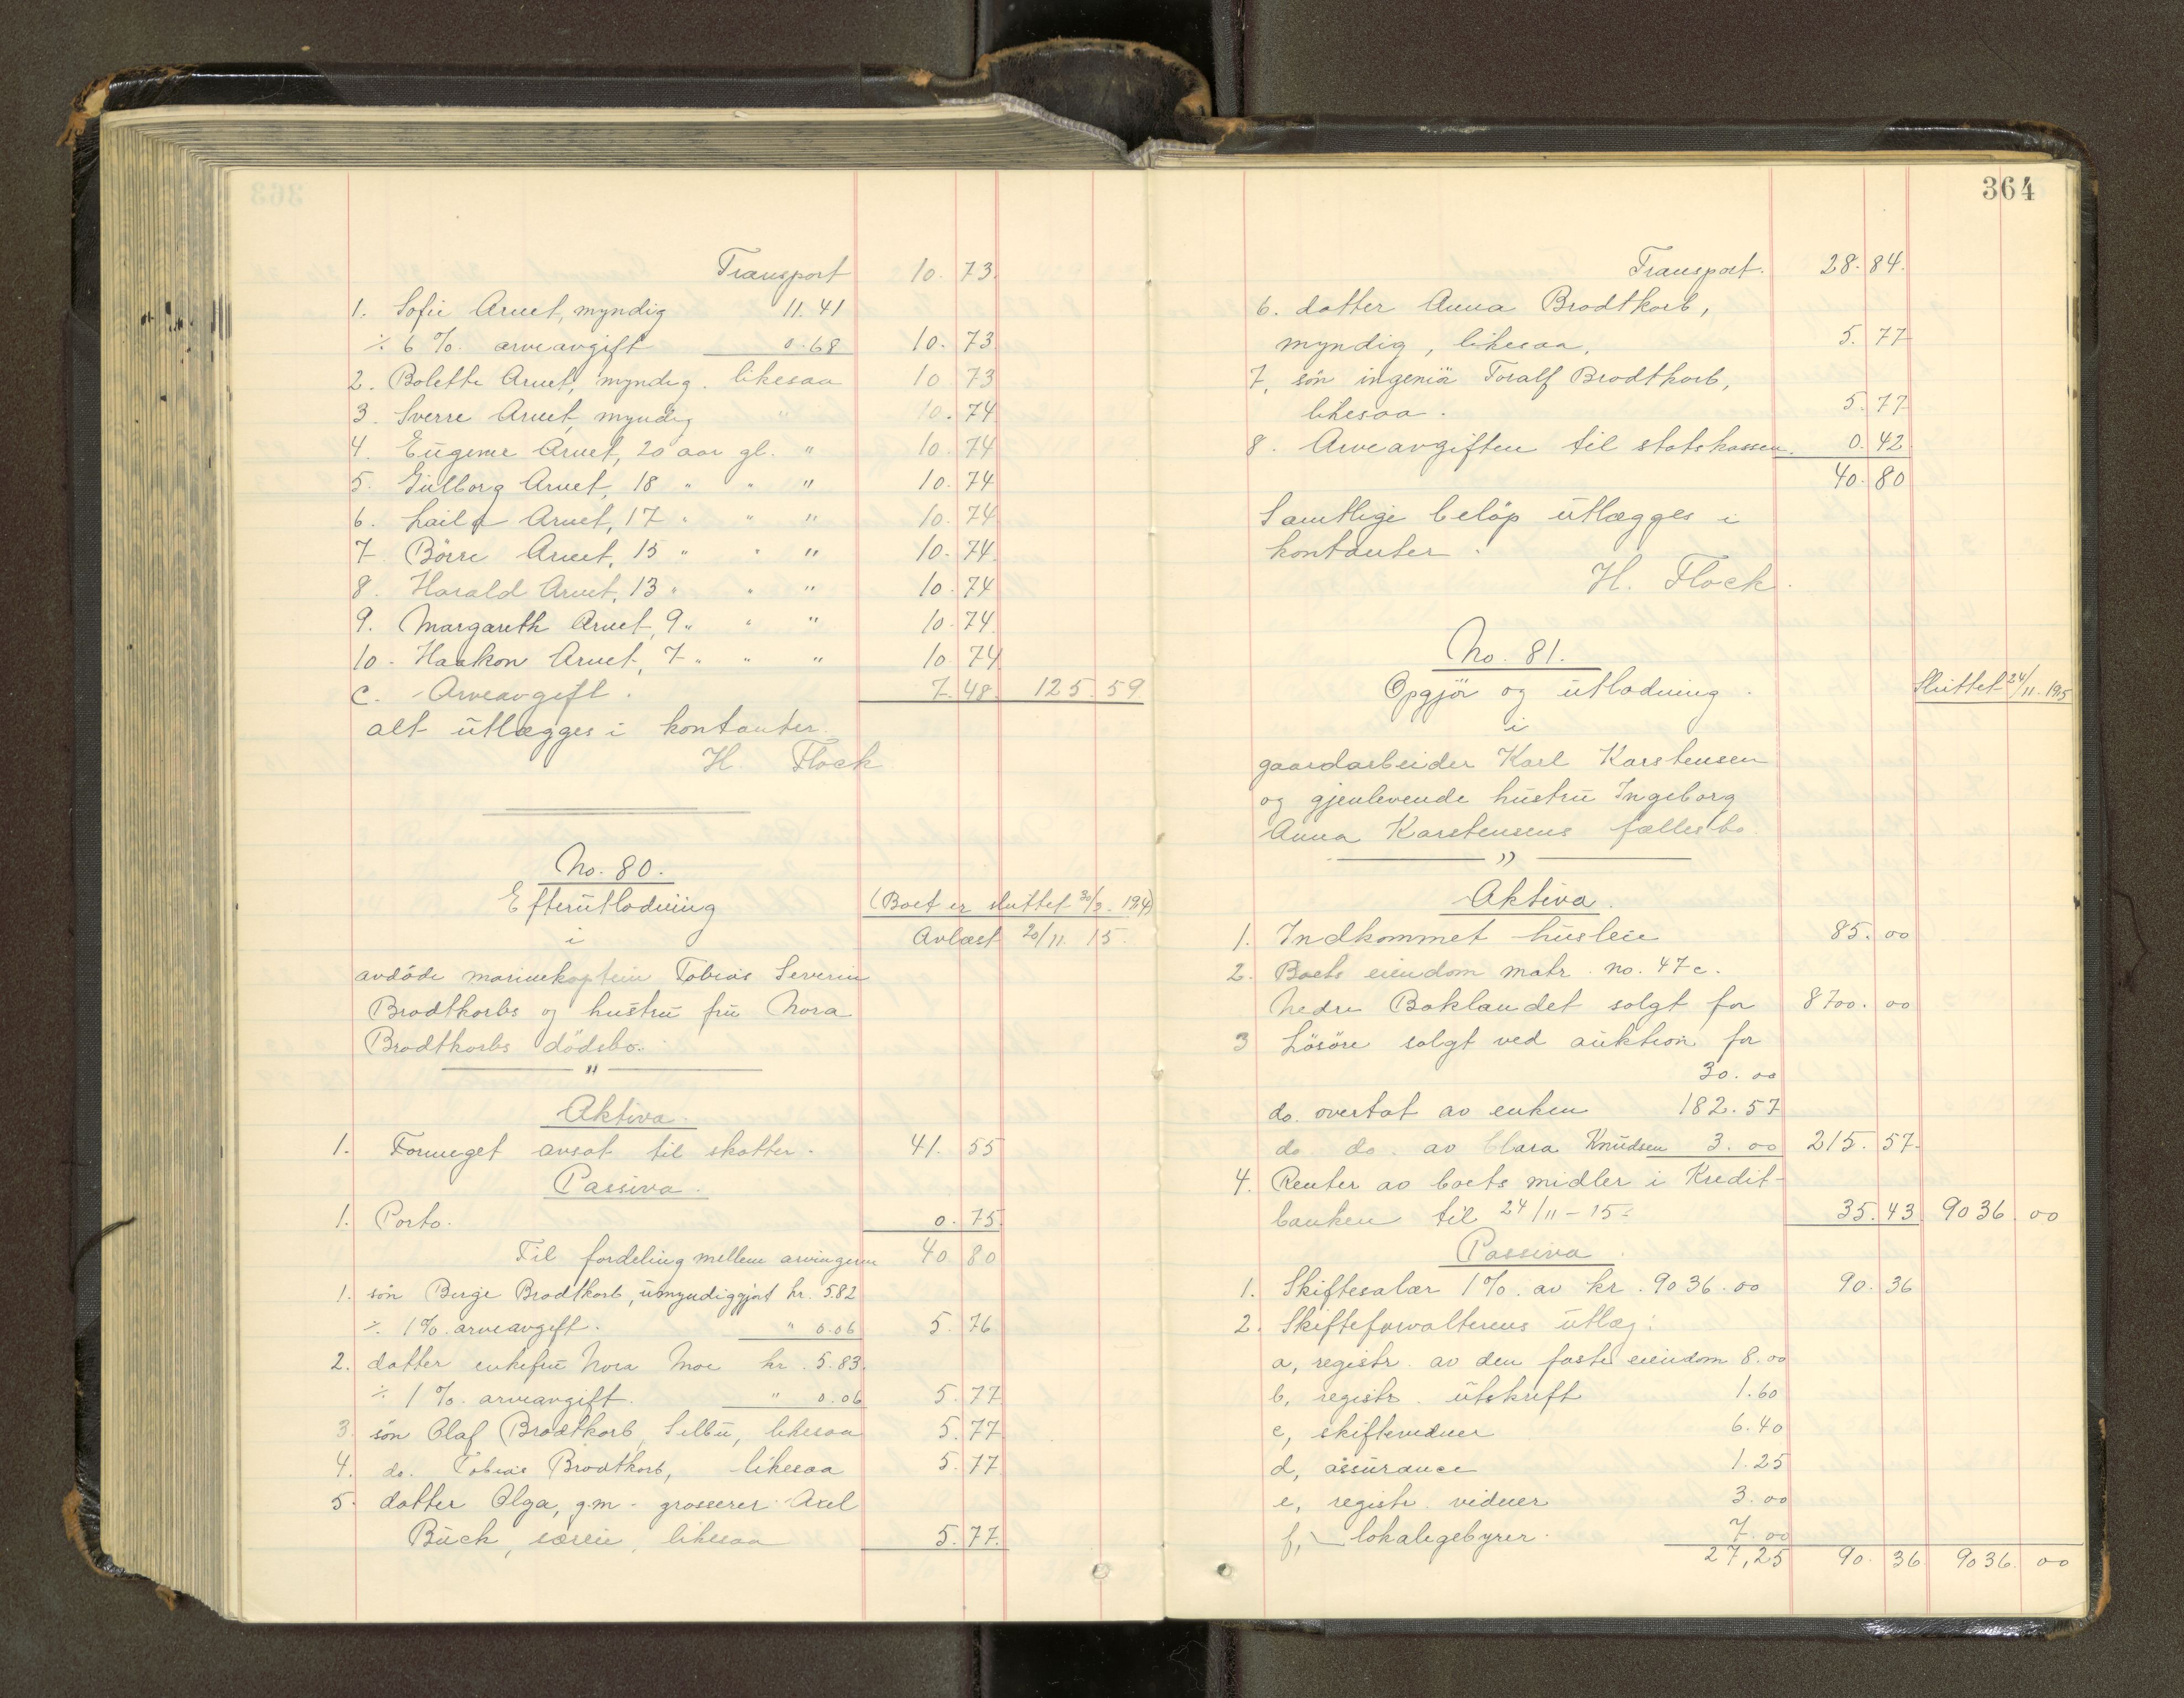 Transport 10. 73.
1. Sofie Arnet, myndig 11. 41
٪ 6 %. arveavgift 0.68 10. 73
2. Bolette Arnet, myndig. likesaa 10 73
3. Sverre Arnet, myndig " 10. 74
4. Eugenie Arnet, 20 aar gl. " 10. 74
5. Gulborg Arnet, 18 " " " 10. 74
6. Laila Arnet, 17 " " " 10. 74
7. Börre Arnet, 15 " " " 10. 74
8. Harald Arnet, 13 " " " 10. 74
9. Margareth Arnet, 9 " " " 10. 74.
10. Haakon Arnet, 7 " " " 10 74
C. Arveavgift. 7. 48. 125. 59
alt utlægges i kontanter.
H. Flock
No. 80.
Efterutlodning (Boet er sluttet 30/3. 1914)
i Avlæst 20/11. 15.
avdöde marinekaptein Tobias Severin
Brodtkorbs og hustru fru Nora
Brodtkorbs dödsbo.
"
Aktiva.
1. Formeget avsat til skatter. 41. 55
Passiva.
1. Porto. 0. 75
Til fordeling mellem arvingerne 40 80
1. sön Berge Brodtkorb, umyndiggjort kr. 5.82
٪ 1 %. arveavgift. " 0.06 5. 76
2. datter enkefru Nora Moe kr. 5.83.
٪ 1 %. arveavgift. " 0.06 5. 77
3. sön Olaf Brodtkorb, Selbu, likesaa 5. 77
4. do. Tobias Brodtkorb, likesaa 5. 77
5. datter Olga, g.m. grosserer Axel
Buck, særeie, likesaa 5. 77.
364
Transport. 28. 84.
6. datter Anna Brodtkorb,
myndig, likesaa. 5. 77
7. sön ingeniör Toralf Brodtkorb,
likesaa. 5. 77
8. Arveavgiften til statskassen. 0. 42
40. 80
Samtlige belöp utlægges i
kontanter.
H. Flock.
No. 81.
Opgjör og utlodning. Sluttet 24/11. 1915
i
gaardarbeider Karl Karstensen
og gjenlevende hustru Ingeborg
Anna Karstensens fællesbo.
"
Aktiva.
1. Indkommet husleie 85. 00
2. Boets eiendom matr. no. 47 c.
Nedre Baklandet solgt for 8700. 00
3 Lösöre solgt ved auktion for
30. 00
do. overtat av enken 182. 57
do do. av Clara Knudsen 3. 00 215. 57.
4. Renter av boets midler i Kredit-
banken til 24/11 - 15 35. 43 9036 00
Passiva.
1. Skiftesalær 1 %. av kr. 9036.00 90. 36
2. Skifteforvalterens utlæg:
a, registr. av den faste eiendom 8.00
b, registr. utskrift 1.60
c, skiftevidner 6.40
d, assurance 1.25
e, registr. vidner 3.00
f, lokalegebyrer. 7.00
27,25 90. 36 9036. 00